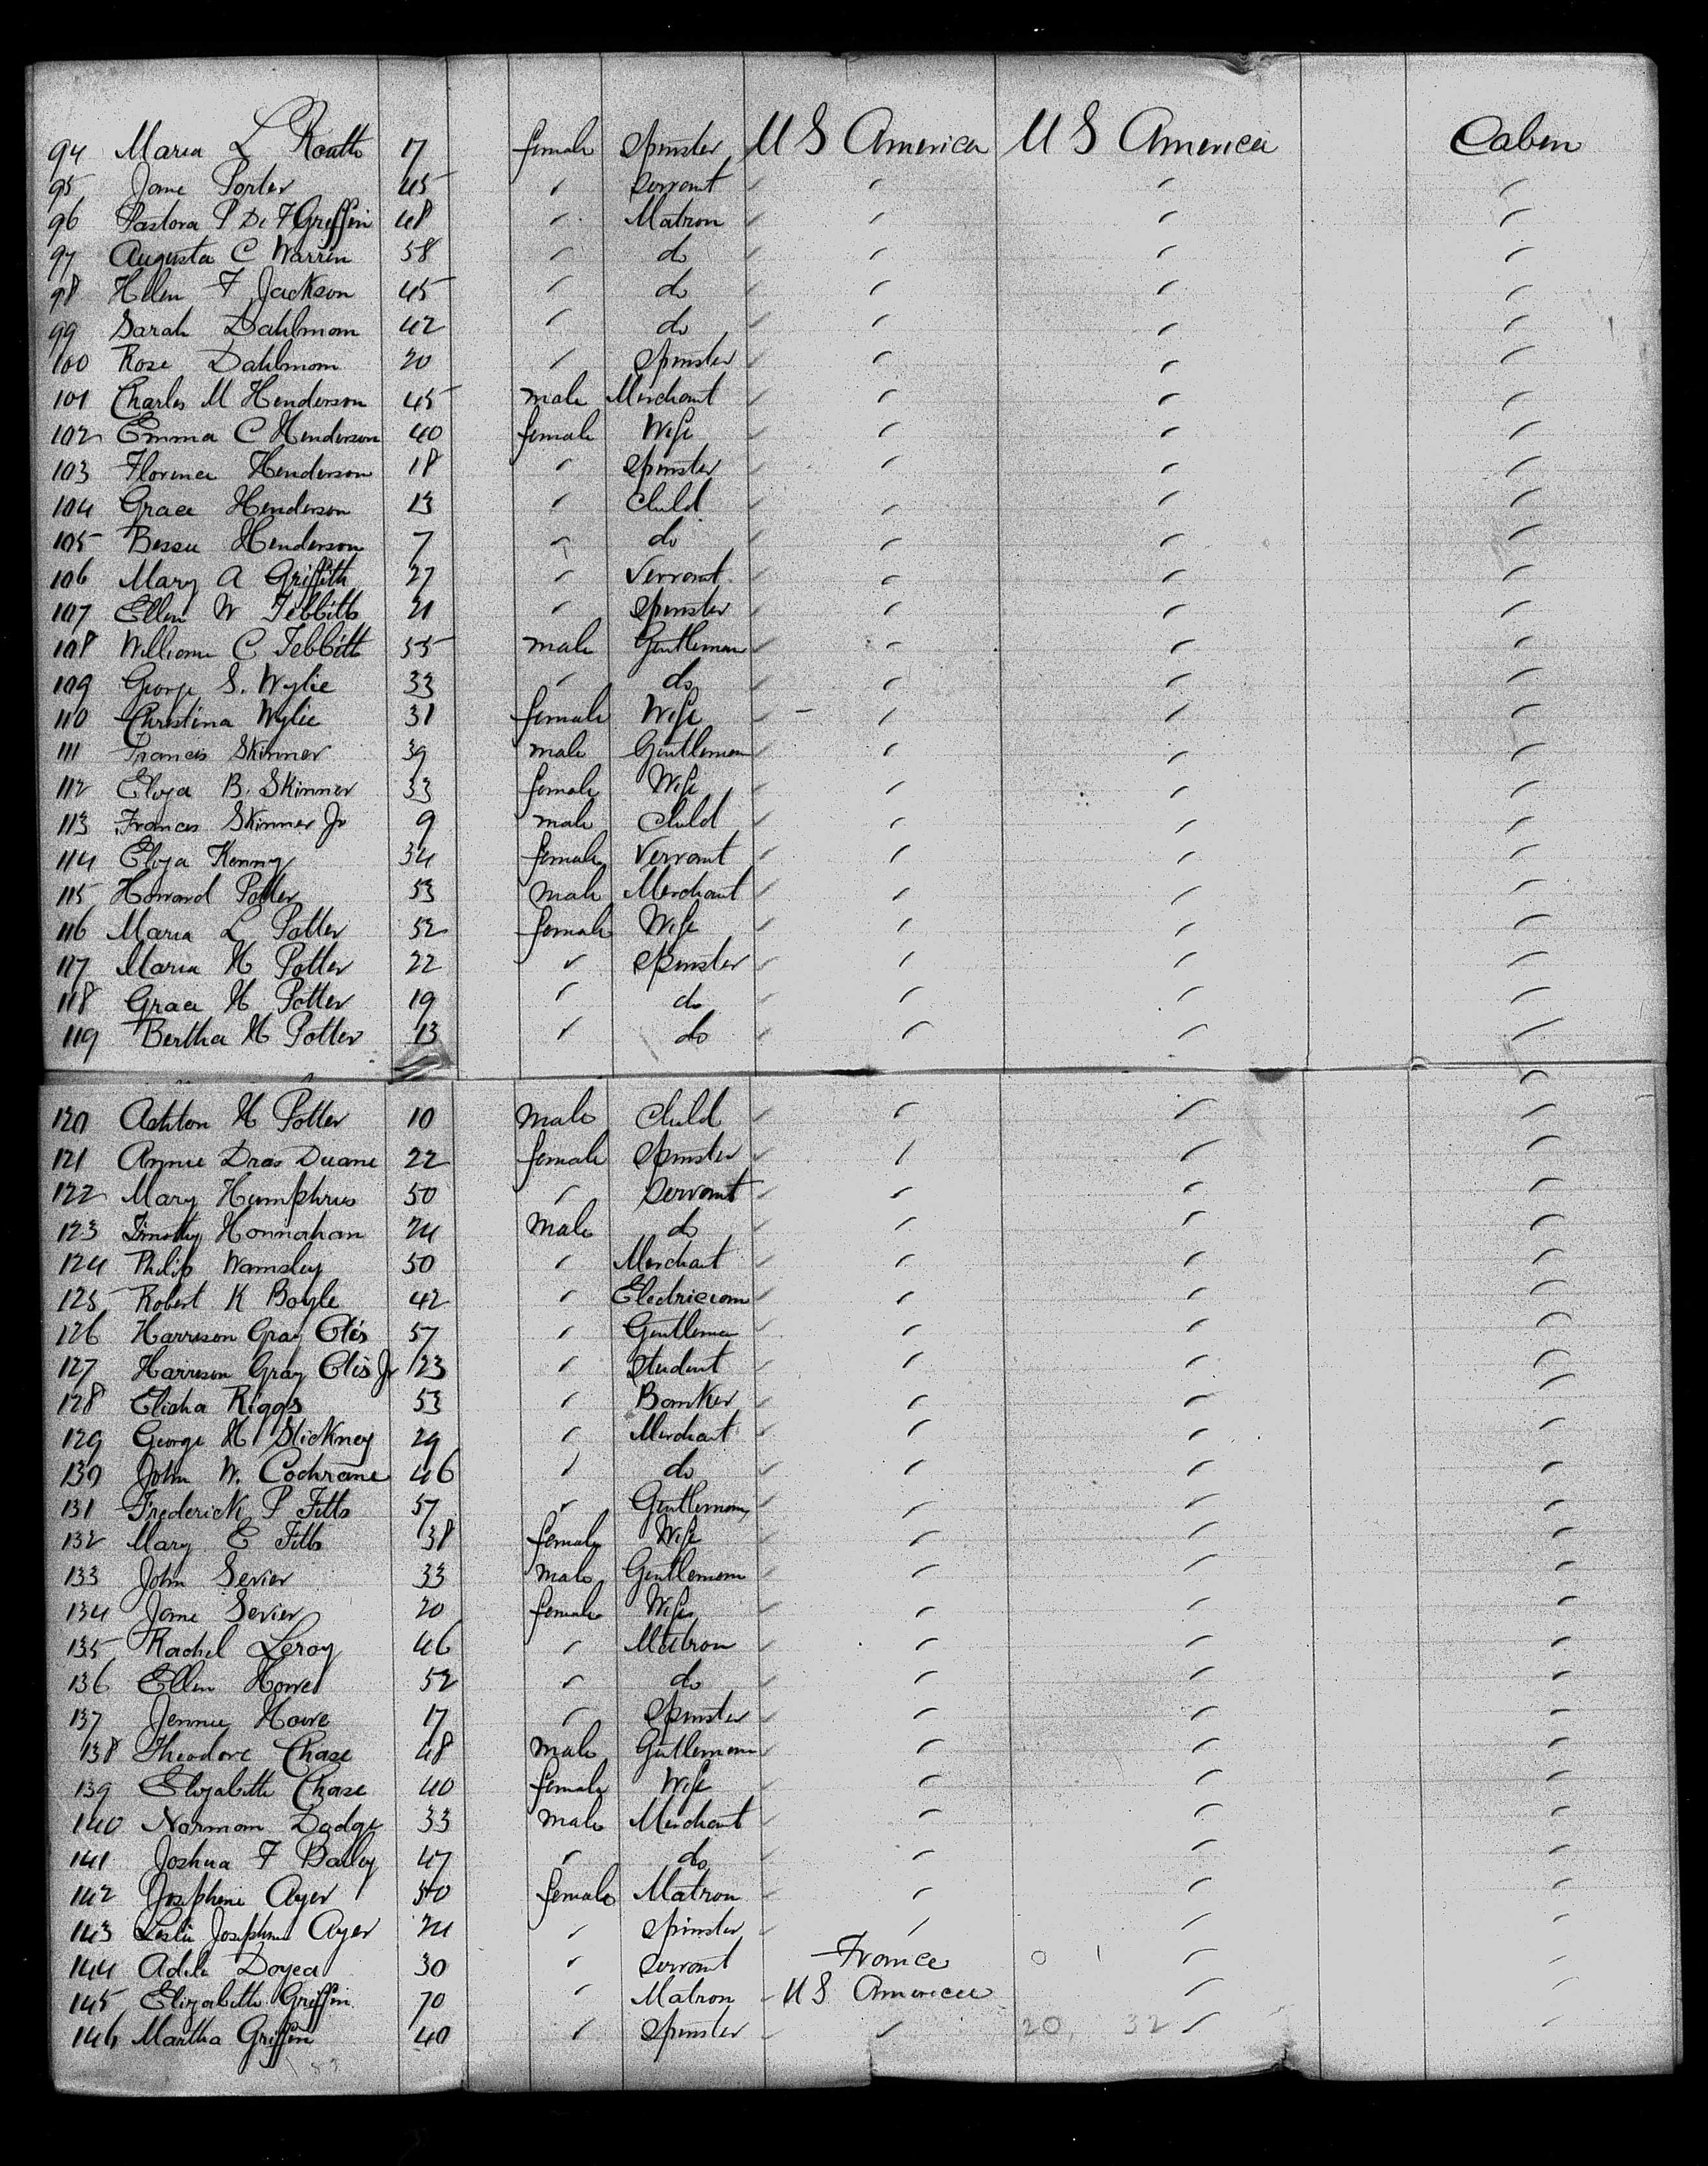 94 Maria L Routh 17 female Spinster U S America U S America Cabin
95 Jane Porter 45 " Servant " " "
96 Pastora P De F Griffin 48 " Matron " " "
97 Augusta C Warren 58 " do " " "
98 Helen F Jackson 45 " do " " "
99 Sarah Dahlman 42 " do " " "
100 Rose Dahlman 20 " Spinster " " "
101 Charles M Henderson 45 male Merchant " " "
102 Emma C Henderson 40 female Wife " " "
103 Florence Henderson 18 " Spinster " " "
104 Grace Henderson 13 " Child " " "
105 Bessie Henderson 7 " do " " "
106 Mary A Griffith 27 " Servant " " "
107 Ellen W Tebbitts 21 " Spinster " " "
108 William C Tebbitts 55 male Gentleman " " "
109 George S. Wylie 33 " do " " "
110 Christina Wylie 31 female Wife " " "
111 Francis Skinner 39 male Gentleman " " "
112 Eliza B. Skinner 33 female Wife " " "
113 Francis Skinner Jr 9 male Child " " "
114 Eliza Kenny 34 female Servant " " "
115 Howard Potter 53 male Merchant " " "
116 Maria L Potter 52 female Wife " " "
117 Maria H Potter 22 " Spinster " " "
118 Grace H Potter 19 " do " " "
119 Bertha H Potter 13 " do " " "
120 Ashton H Potter 10 male Child " " "
121 Annie Duane 22 female Spinster " " "
122 Mary Humphries 50 " Servant " " "
123 Timothy Honnahan 24 male do " " "
124 Philip Wamsley 50 " Merchant " " "
125 Robert K Boyle 42 " Electrician " " "
126 Harrison Gray Otis 57 " Gentleman " " "
127 Harrison Gray Otis Jr 23 " Student " " "
128 Elisha Riggs 53 " Banker " " "
129 George H Stickney 29 " Merchant " " "
130 John W. Cochrane 46 " do " " "
131 Frederick P Fitts 57 " Gentleman " " "
132 Mary E Fitts 38 female Wife " " "
133 John Sevier 33 male Gentleman " " "
134 Jane Sevier 20 female Wife " " "
135 Rachel Leroy 46 " Matron " " "
136 Ellen Howe 52 " do " " "
137 Jennie Howe 17 " Spinster " " "
138 Theodore Chase 48 male Gentleman " " "
139 Elizabeth Chase 40 female Wife " " "
140 Norman Dodge 33 male Merchant " " "
141 Joshua F Bailey 47 " do " " "
142 Josephine Ayer 50 female Matron " " "
143 Leslie Josephine Ayer 24 " Spinster " " "
144 Adele 30 " Servant France " "
145 Elizabeth Griffin 70 " Matron U S America " "
146 Martha Griffin 40 " Spinster " 20, 32 " "